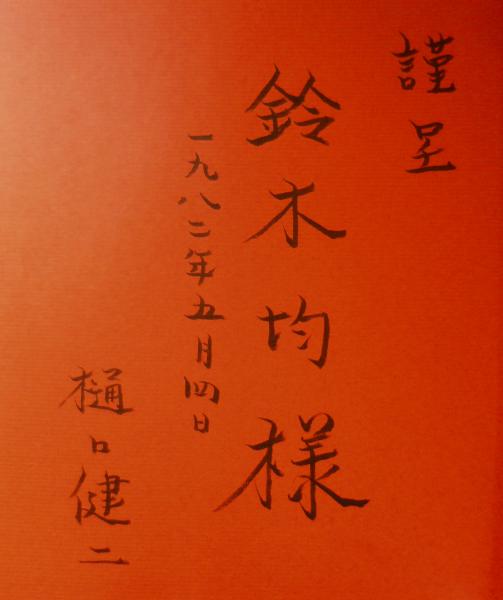 謹呈
鈴木均様
一九八二年五月四日
樋口健二